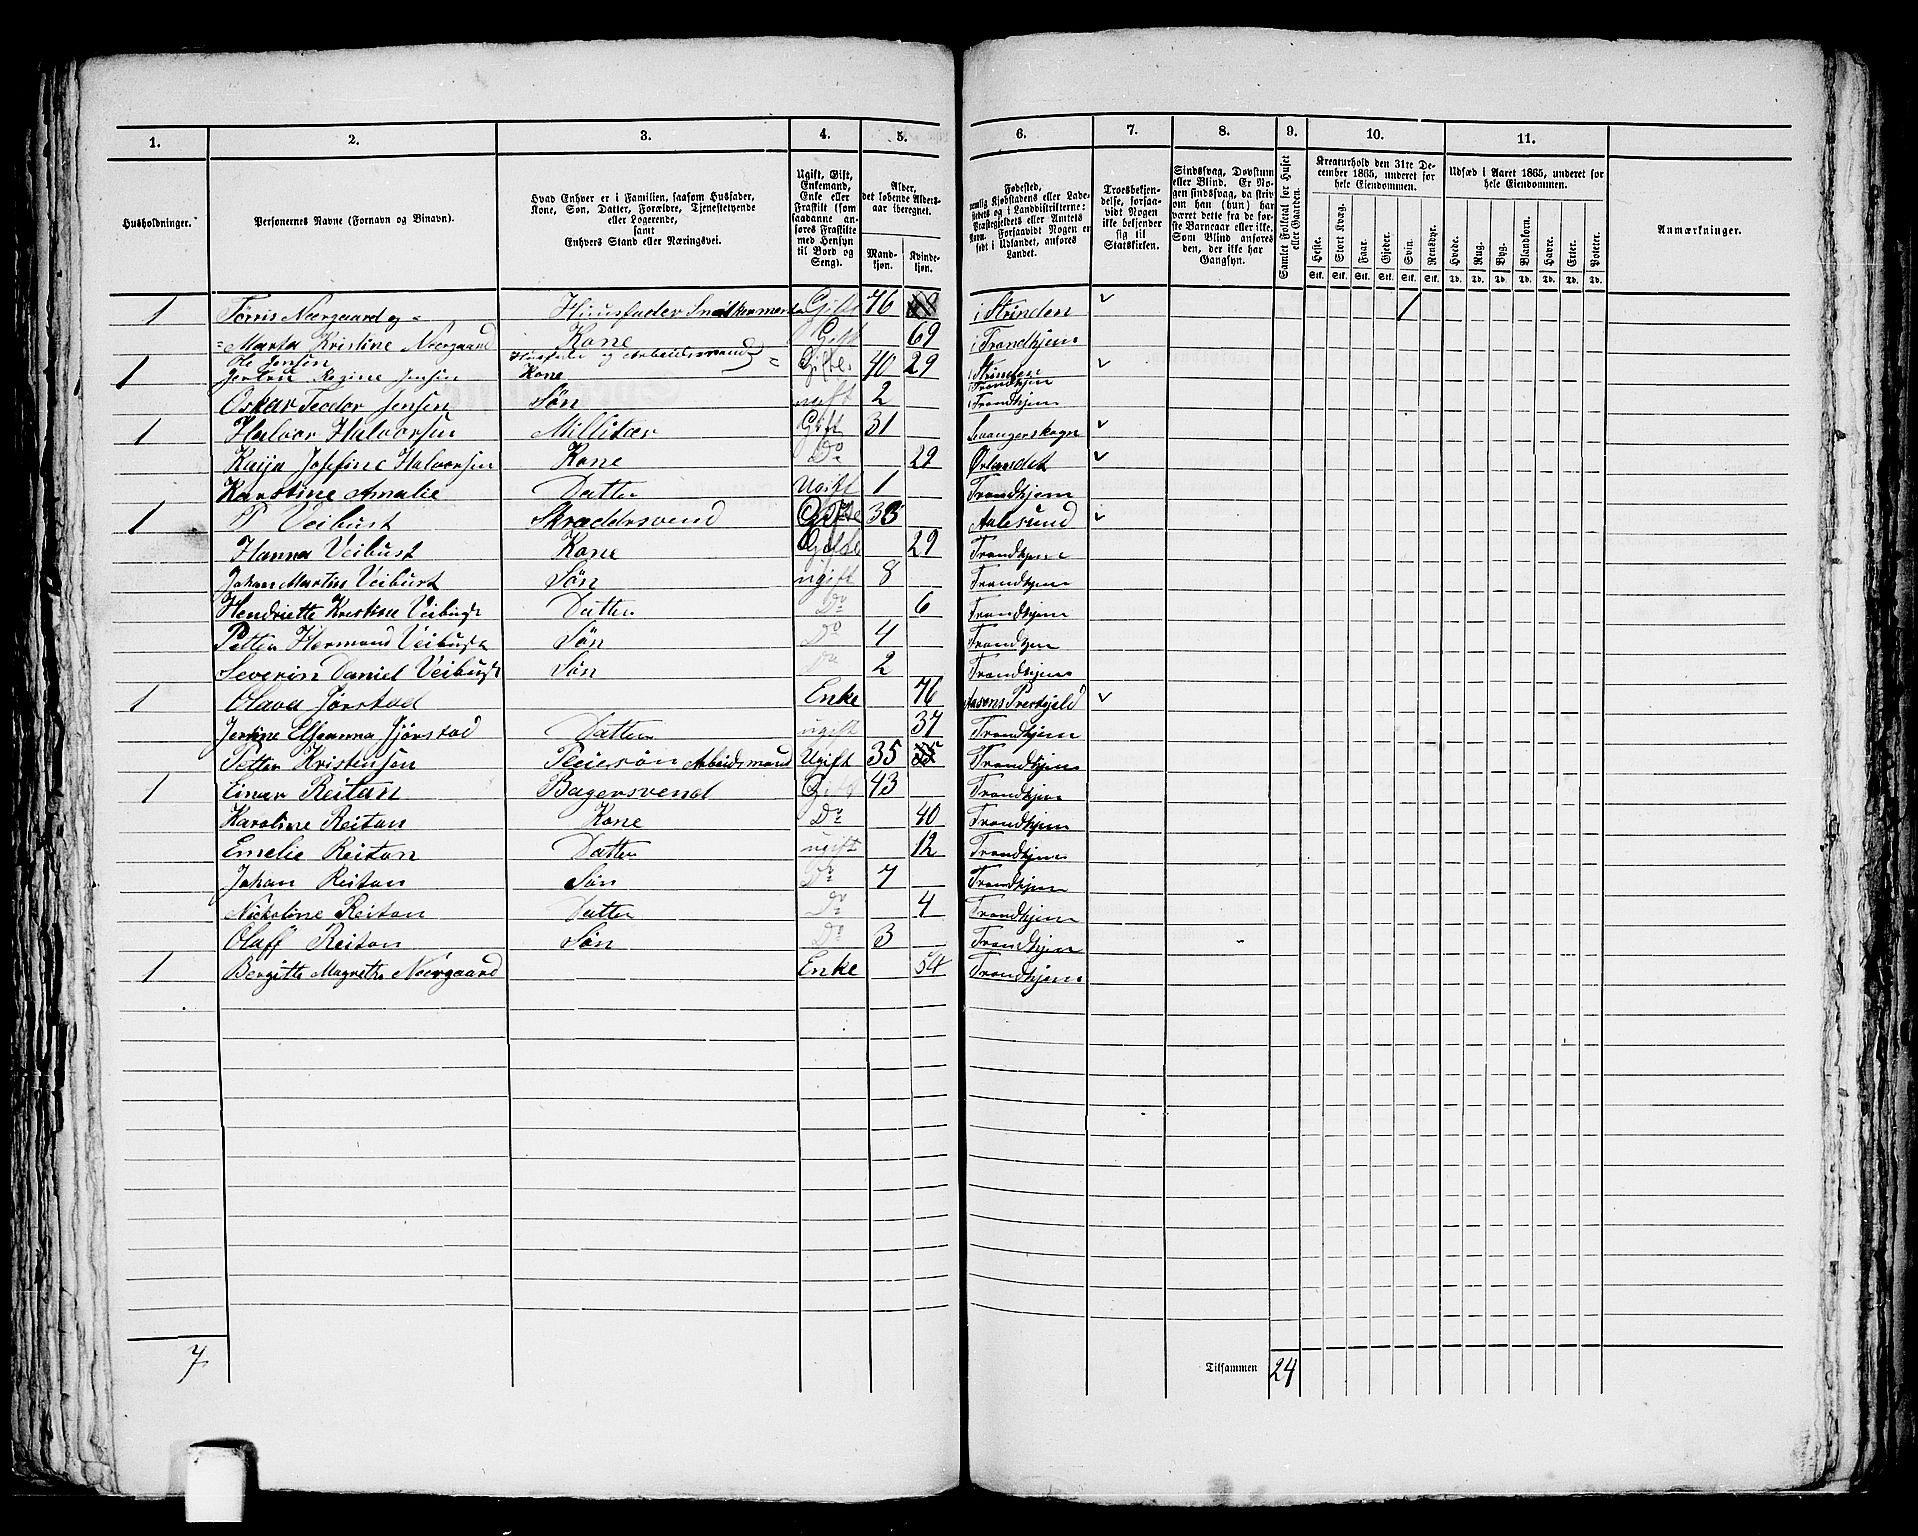 1. 2. 3. 4. 5. 6. 7. 8. 9. 10. 11.
Husholdninger.
Personernes Navne (Fornavn og Binavn).
Hvad Enhver er i Familien, saasom Husfader,
Kone, Søn, Datter, Forældre, Tjenestetyende
eller Logerende,
samt
Enhvers Stand eller Næringsvei.
Ugift, Gift,
Enkemand,
Enke eller
Fraskilt (som
saadanne an-
føres Fraskilte
med Hensyn
til Bord og
Seng).
Alder,
det løbende Alders-
aar iberegnet.
Mand-
kjøn.
Kvinde-
kjøn.
Fødested,
nemlig Kjøbstadens eller Lade-
stedets og i Landdistrikterne:
Præstegjeldets eller Amtets
Navn. Forsaavidt Nogen er
født i Udlandet, anføres
Landet.
Troesbekjen-
delse, forsaa-
vidt Nogen
ikke bekjender
sig til
Statskirken.
Sindssvag, Døvstum
eller Blind. Er No-
gen sindssvag, da skriv
om han (hun) har
været dette fra de før-
ste Barneaar eller ikke.
Som Blind anføres
den, der ikke har
Gangsyn.
Samlet Folketal for Huset
eller Gaarden.
Kreaturhold den 31te De-
cember 1865, underet for
hele Eiendommen.
Heste. Stort Kvæg. Faar. Gjeder. Svin. Rensdyr.
Stk. Stk. Stk. Stk. Stk. Stk.
Udsæd i Aaret 1865, underet for
hele Eiendommen.
Hvede. Rug. Byg. Blandkorn. Havre. Erter. Poteter.
Td. Td. Td. Td. Td. Td. Td.
Anmærkninger.
1 Torris Nærgaard og Huusfader Gift 76 i Strinden 1
Marta Kristine Nærgaard Kone Gift 69 i Trondhjem
1 Ole Jensen Husfader og Arbeidsmand Gifte 40 29 Strinden
Regine Jensen Kone Trondhjem
Oskar Teodor Jensen Søn ugift 2 Trondhjem
1 Halvor Halvorsen Millitær Gift 31
Kaija Josefine Halvorsen Kone Do 29 Ørlandet
Karstine Amalie Datter Ugift 1 Trondhjem
1 P Veibust Skreddersvend Gifte 33 Aalesund
Hanna Veibust Kone Gifte 29 Trondhjem
Johan Martin Veibust Søn ugift 8 Trondhjem
Hendriette Kristine Veibust Datter Do 6 Trondhjem
Petter Hermand Veibust Søn Do 4 Trondhjem
Severin Daniel Veibust Søn Do 2 Trondhjem
1 Olava Jørstad Enke 76
Datter ugift 37 Trondhjem
Petter Kristensen Pleiesøn Arbeidsmand Ugift 35 Trondhjem
1 Einar Reitan Bagersvend Gift 43 Trondhjem
Karoline Reitan Kone Do 40 Trondhjem
Emelie Reitan Datter ugift 12 Trondhjem
Johan Reitan Søn Do 7 Trondhjem
Nickoline Reitan Datter Do 4 Trondhjem
Olaff Reitan Søn Do 3 Trondhjem
1 Bergitte Magrethe Nærgaard Enke 54 Trondhjem
7 Tilsammen 24